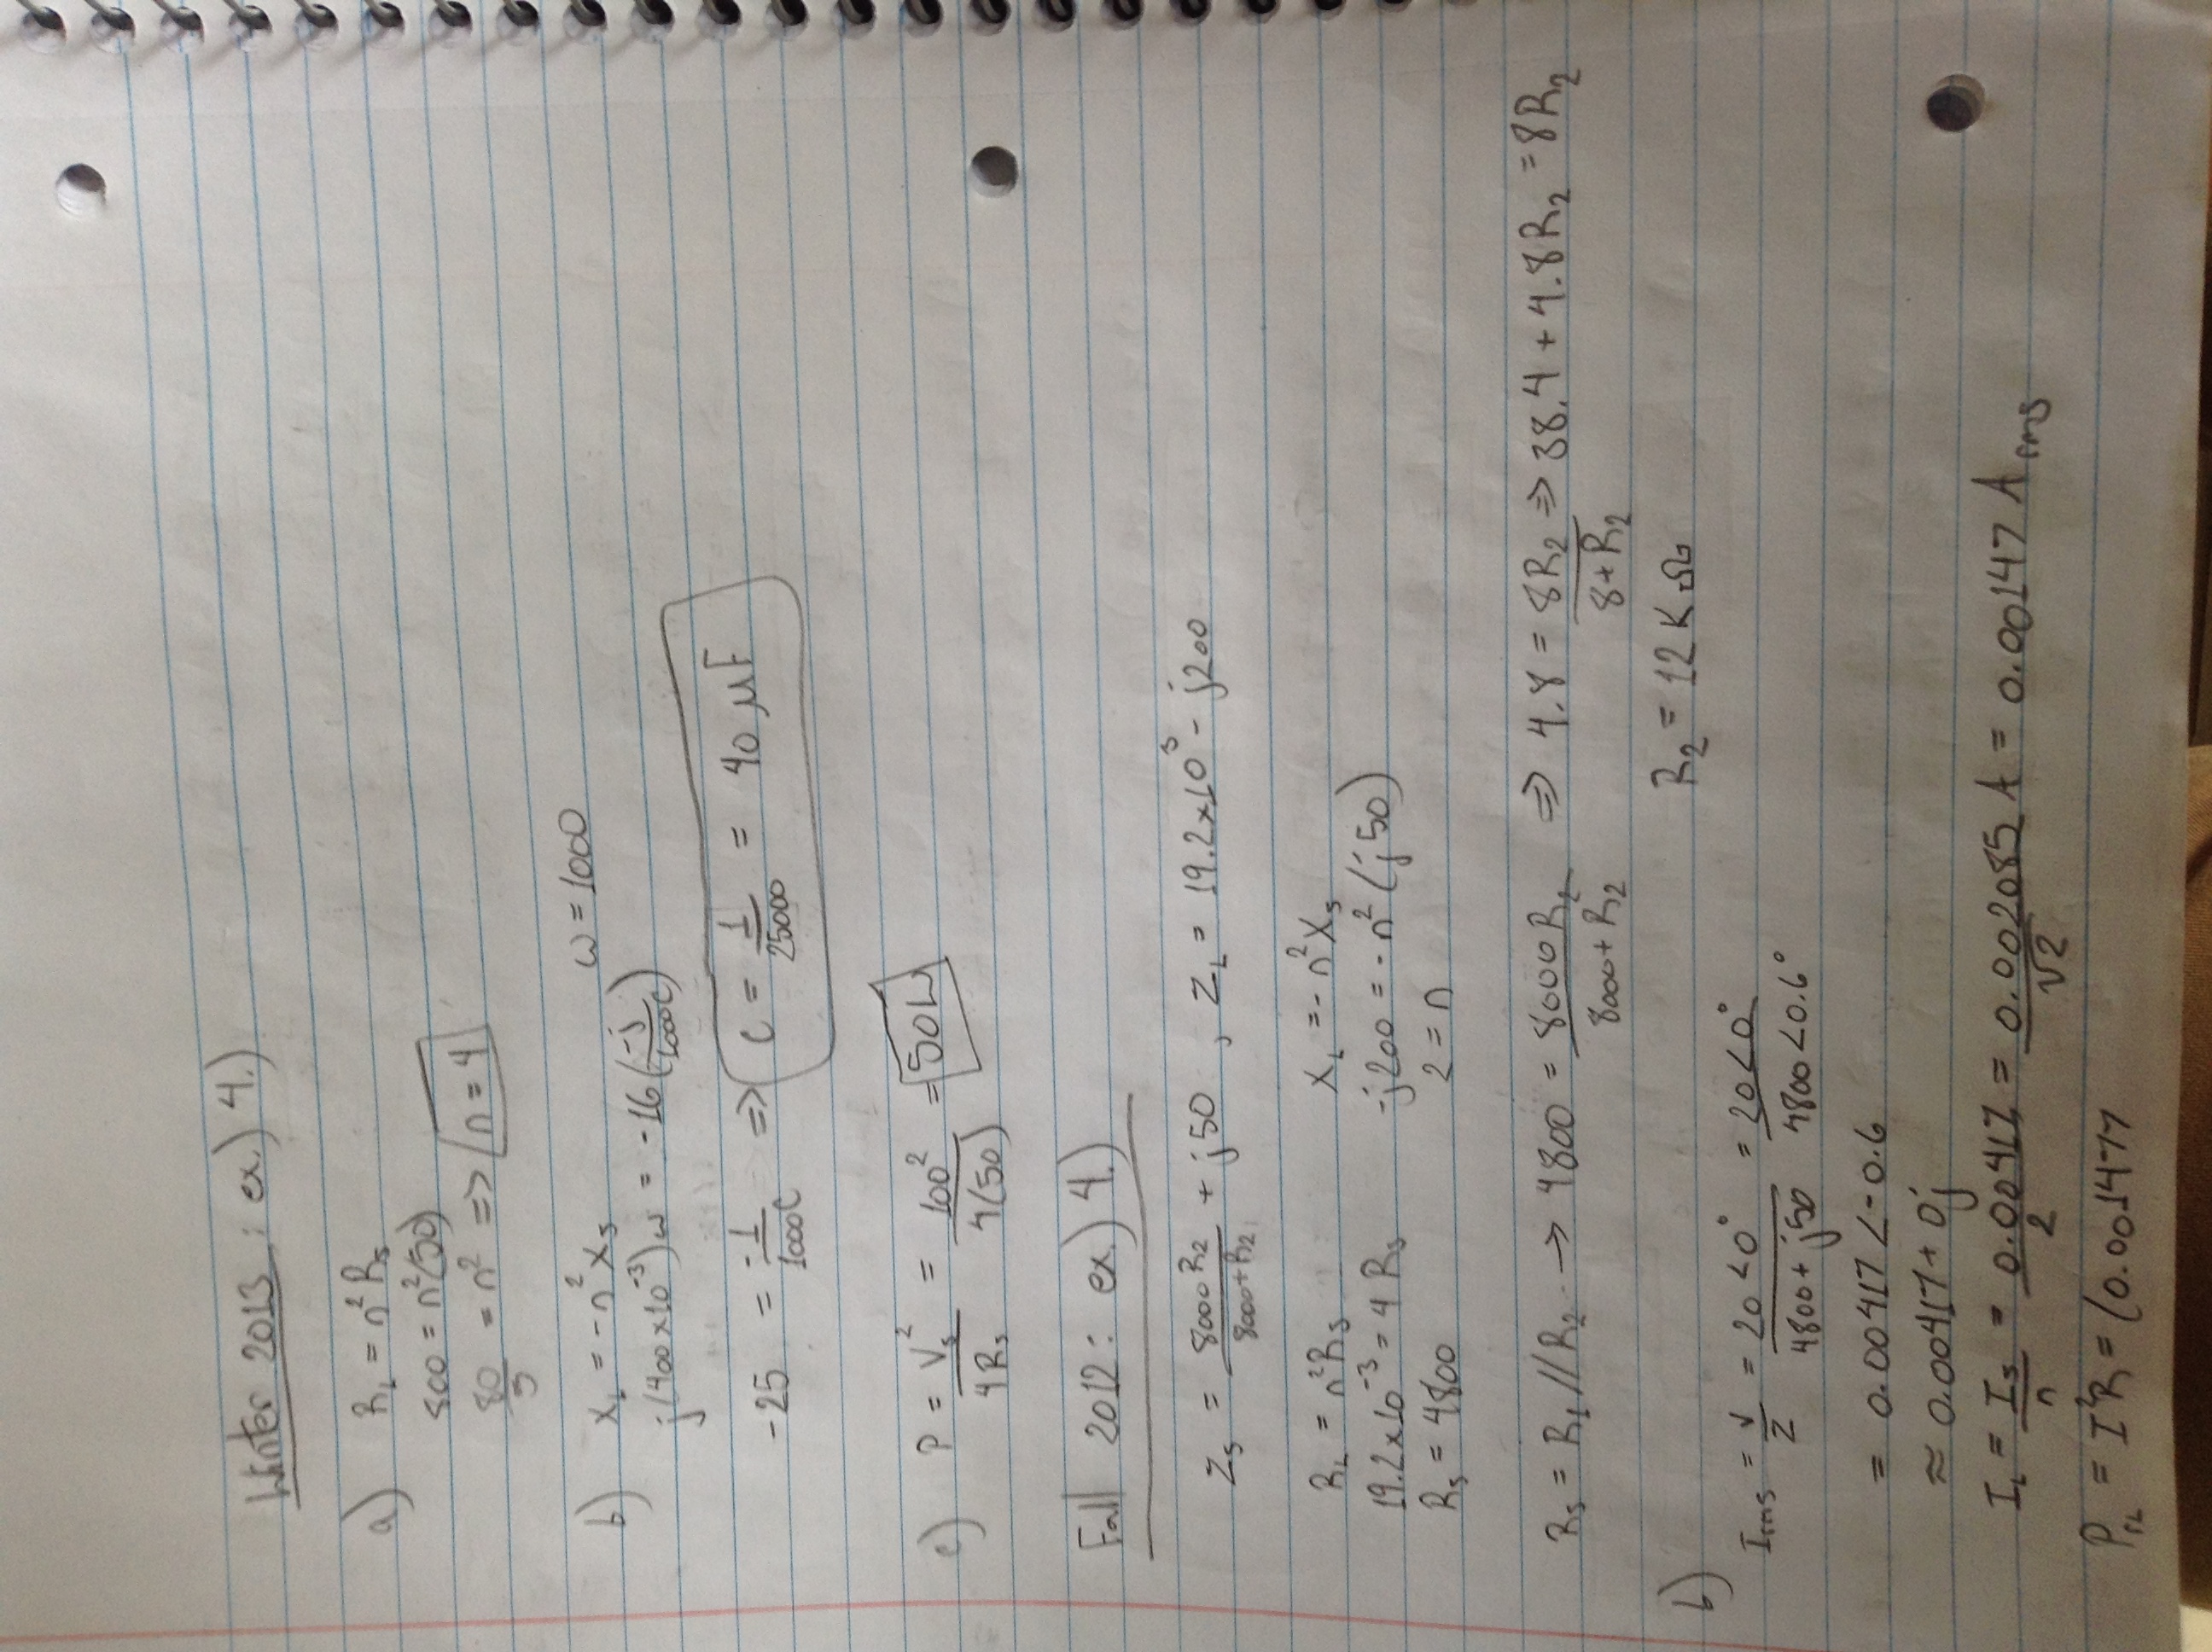 Winter 2013 : ex.) 4.)
a) R_L = n² R_s
800 = n²(50)
80/5 = n² => n = 4
b) X_L = -n² X_s ω = 1000
j(400×10⁻³)ω = -16(-j/1000C)
-25 = -1/1000C => C = 1/25000 = 40 μF
c) P = V_s²/4R_s = 100²/4(50) = 50W
Fall 2012: ex.) 4.)
Z_s = 8000R₂/8000+R₂ + j50 , Z_L = 19.2×10³ - j200
R_L = n²R_s X_L = -n²X_s
19.2×10⁻³ = 4 R_s -j200 = -n²(j50)
R_s = 4800 2 = n
R_s = R₁//R₂ → 4800 = 8000R₂/8000+R₂ => 4.8 = 8R₂/8+R₂ => 38.4 + 4.8R₂ = 8R₂
R₂ = 12 KΩ
b)
I_rms = V/Z = 20<0°/4800+j50 = 20<0°/4800<0.6°
= 0.00417 <-0.6
≈ 0.00417 + 0j
I_L = I_s/n = 0.00417/2 = 0.002085/√2 A = 0.00147 A_rms
P_rL = I²R = (0.001477